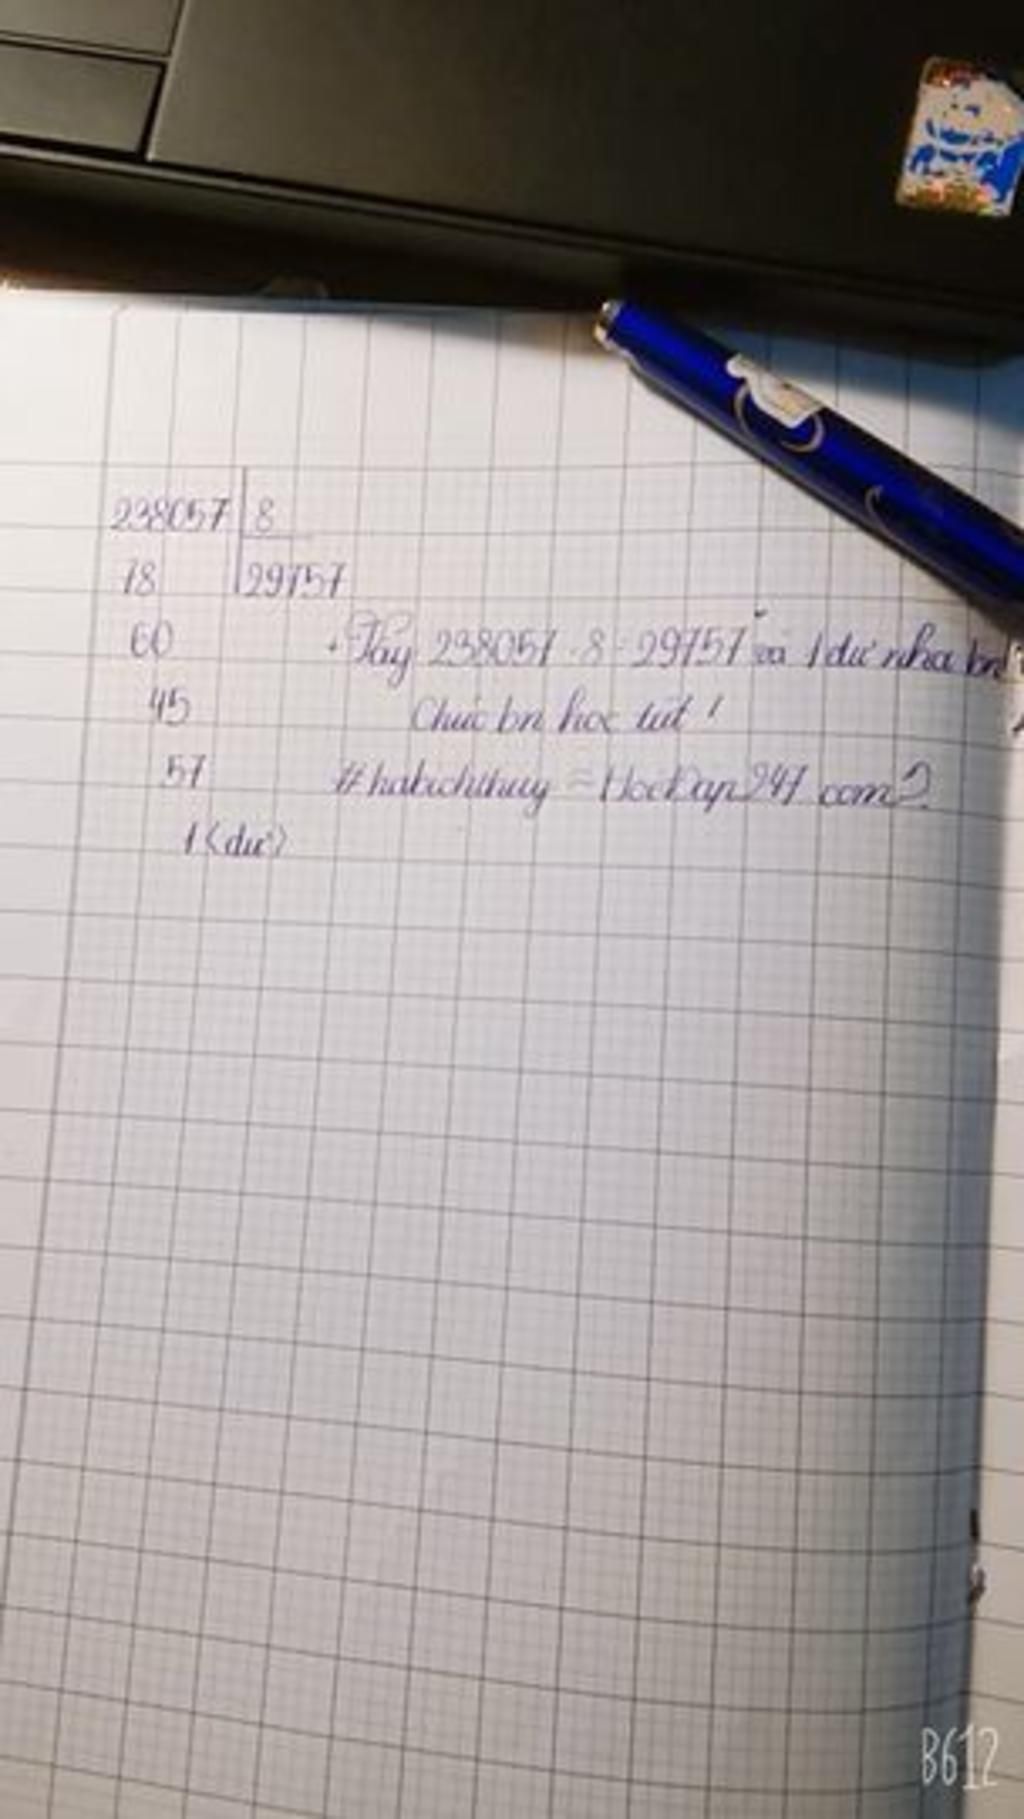 238057 8
78 29757
60
+ Vậy 238057 : 8 = 29757 và 1 dư nha bn!
45
Chúc bn học tốt!
57
#habichthuy = HocDap247.com?
1 (dư)
B612